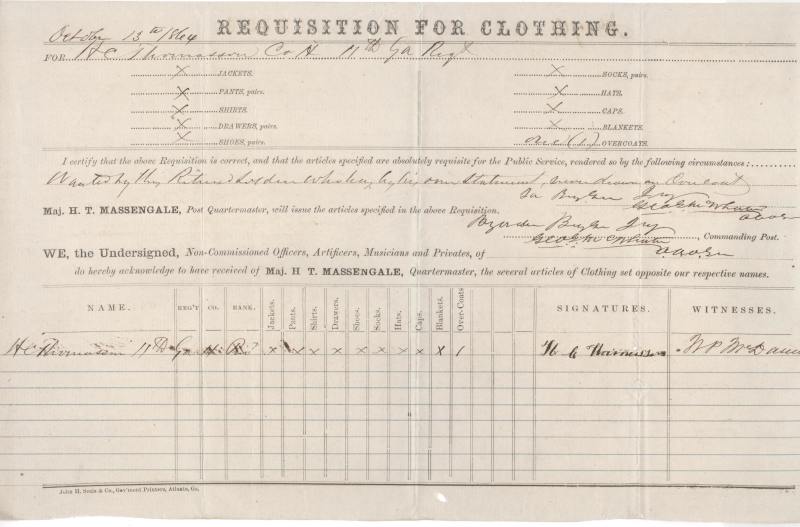 October 13th 1864 REQUISITION FOR CLOTHING.
FOR H C Thomasson Co H 11th Ga Regt
x JACKETS. x SOCKS, pairs.
x PANTS, pairs. x HATS.
x SHIRTS. x CAPS.
x DRAWERS, pairs. x BLANKETS.
x SHOES, pairs. one (1) OVERCOATS.
I certify that the above Requisition is correct, and that the articles specified are absolutely requisite for the Public Service, rendered so by the following circumstances:
Wanted by this Retired Soldier who has, by his own statement, never drawn an Overcoat
Maj. H. T. MASSENGALE, Post Quartermaster, will issue the articles specified in the above Requisition.
By order
, Commanding Post.
WE, the Undersigned, Non-Commissioned Officers, Artificers, Musicians and Privates, of
do hereby acknowledge to have received of Maj. H T. MASSENGALE, Quartermaster, the several articles of Clothing set opposite our respective names.
NAME. REG'T CO. RANK. Jackets. Pants. Shirts. Drawers. Shoes. Socks. Hats. Caps. Blankets. Over-Coats SIGNATURES. WITNESSES.
H C Thomasson 11th Ga H x x x x x x x x x 1 H C Thomasson
John H. Seals & Co., Gov'ment Printers, Atlanta, Ga.